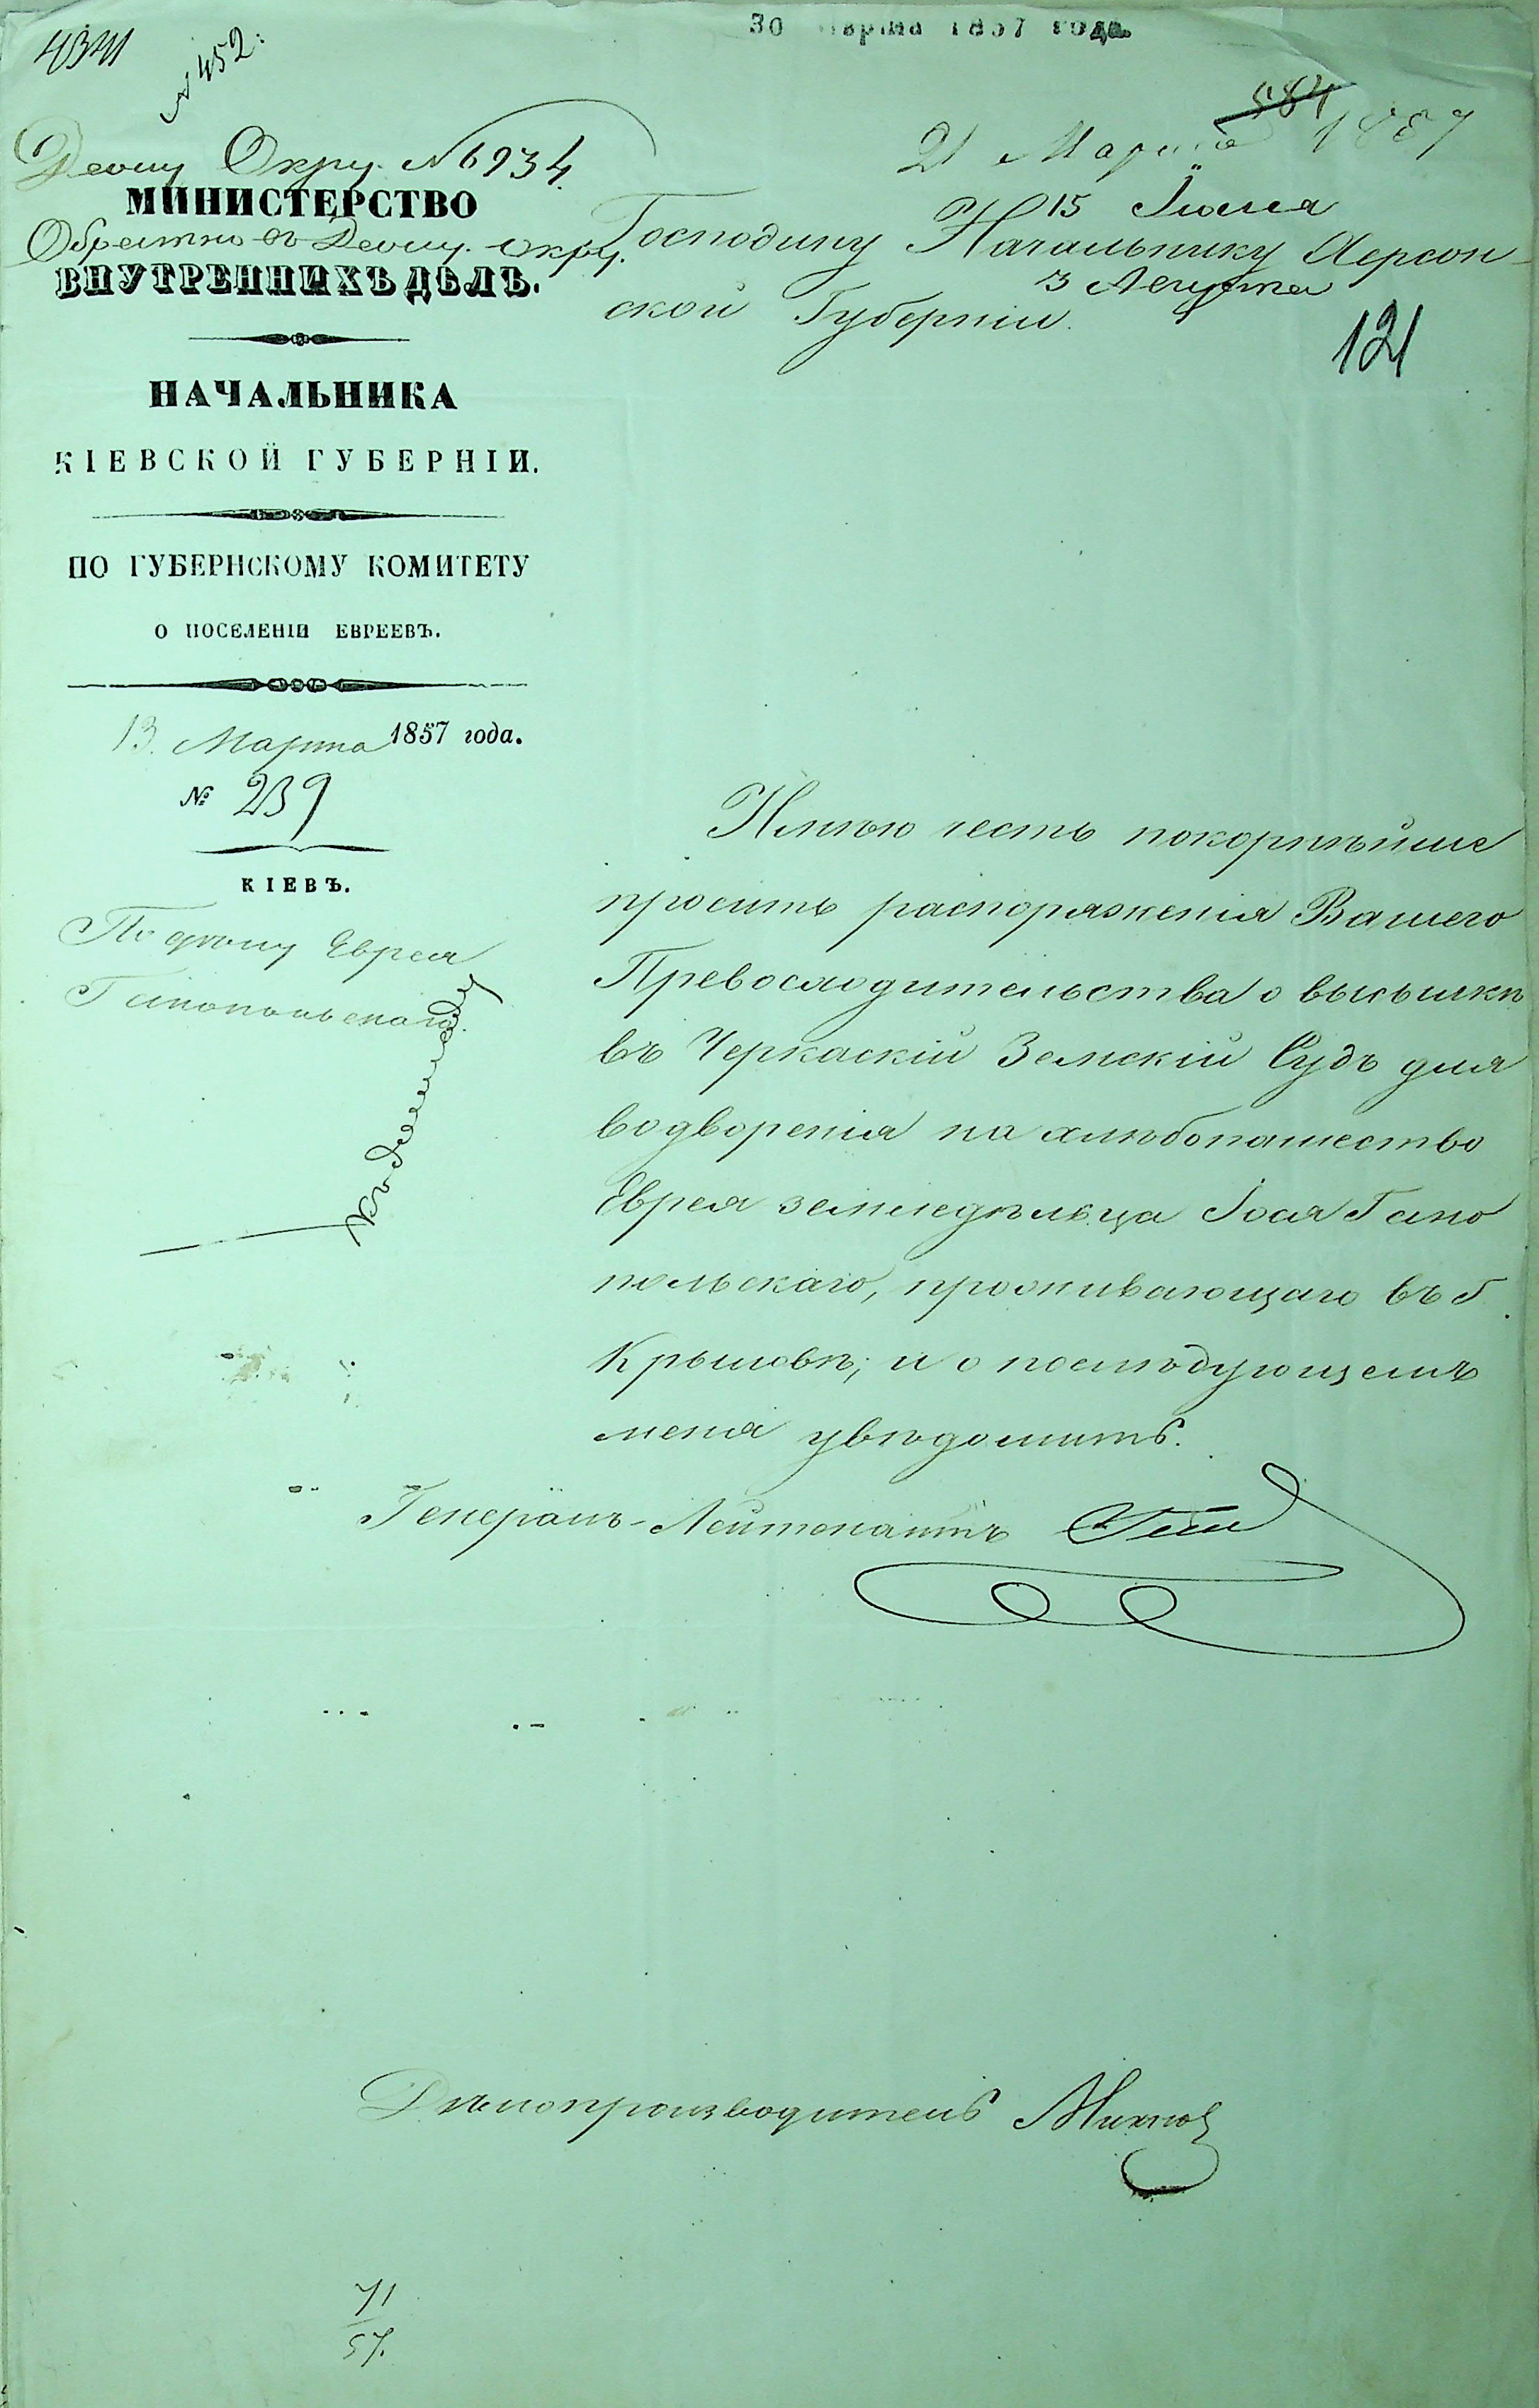 30 Марта 1857 года.
4341
№ 452.
584
21 Марта 1857
Окру. № 6934.
МИНИСТЕРСТВО
15 Іюля
Обратно въ окру.
Господину Начальнику Херсон-
ВНУТРЕННИХЪ ДѢЛЪ.
3 Августа
ской Губерніи.
121
НАЧАЛЬНИКА
КІЕВСКОЙ ГУБЕРНІИ.
ПО ГУБЕРНСКОМУ КОМИТЕТУ
О ПОСЕЛЕНІИ ЕВРЕЕВЪ.
13. Марта 1857 года.
№ 239
КІЕВЪ.
По дѣлу Еврея
Гайнопольскаго.
Къ
Имѣю честь покорнѣйше
просить распоряженія Вашего
Превосходительства о высылкѣ
въ Черкаскій Земскій Судъ для
водворенія на хлѣбопашество
Еврея земледѣльца Іося Гано
польскаго, проживающаго въ г.
Крыловѣ; и о послѣдующемъ
меня увѣдомить.
Генералъ-Лейтенантъ
Дѣлопроизводитель
71
57.